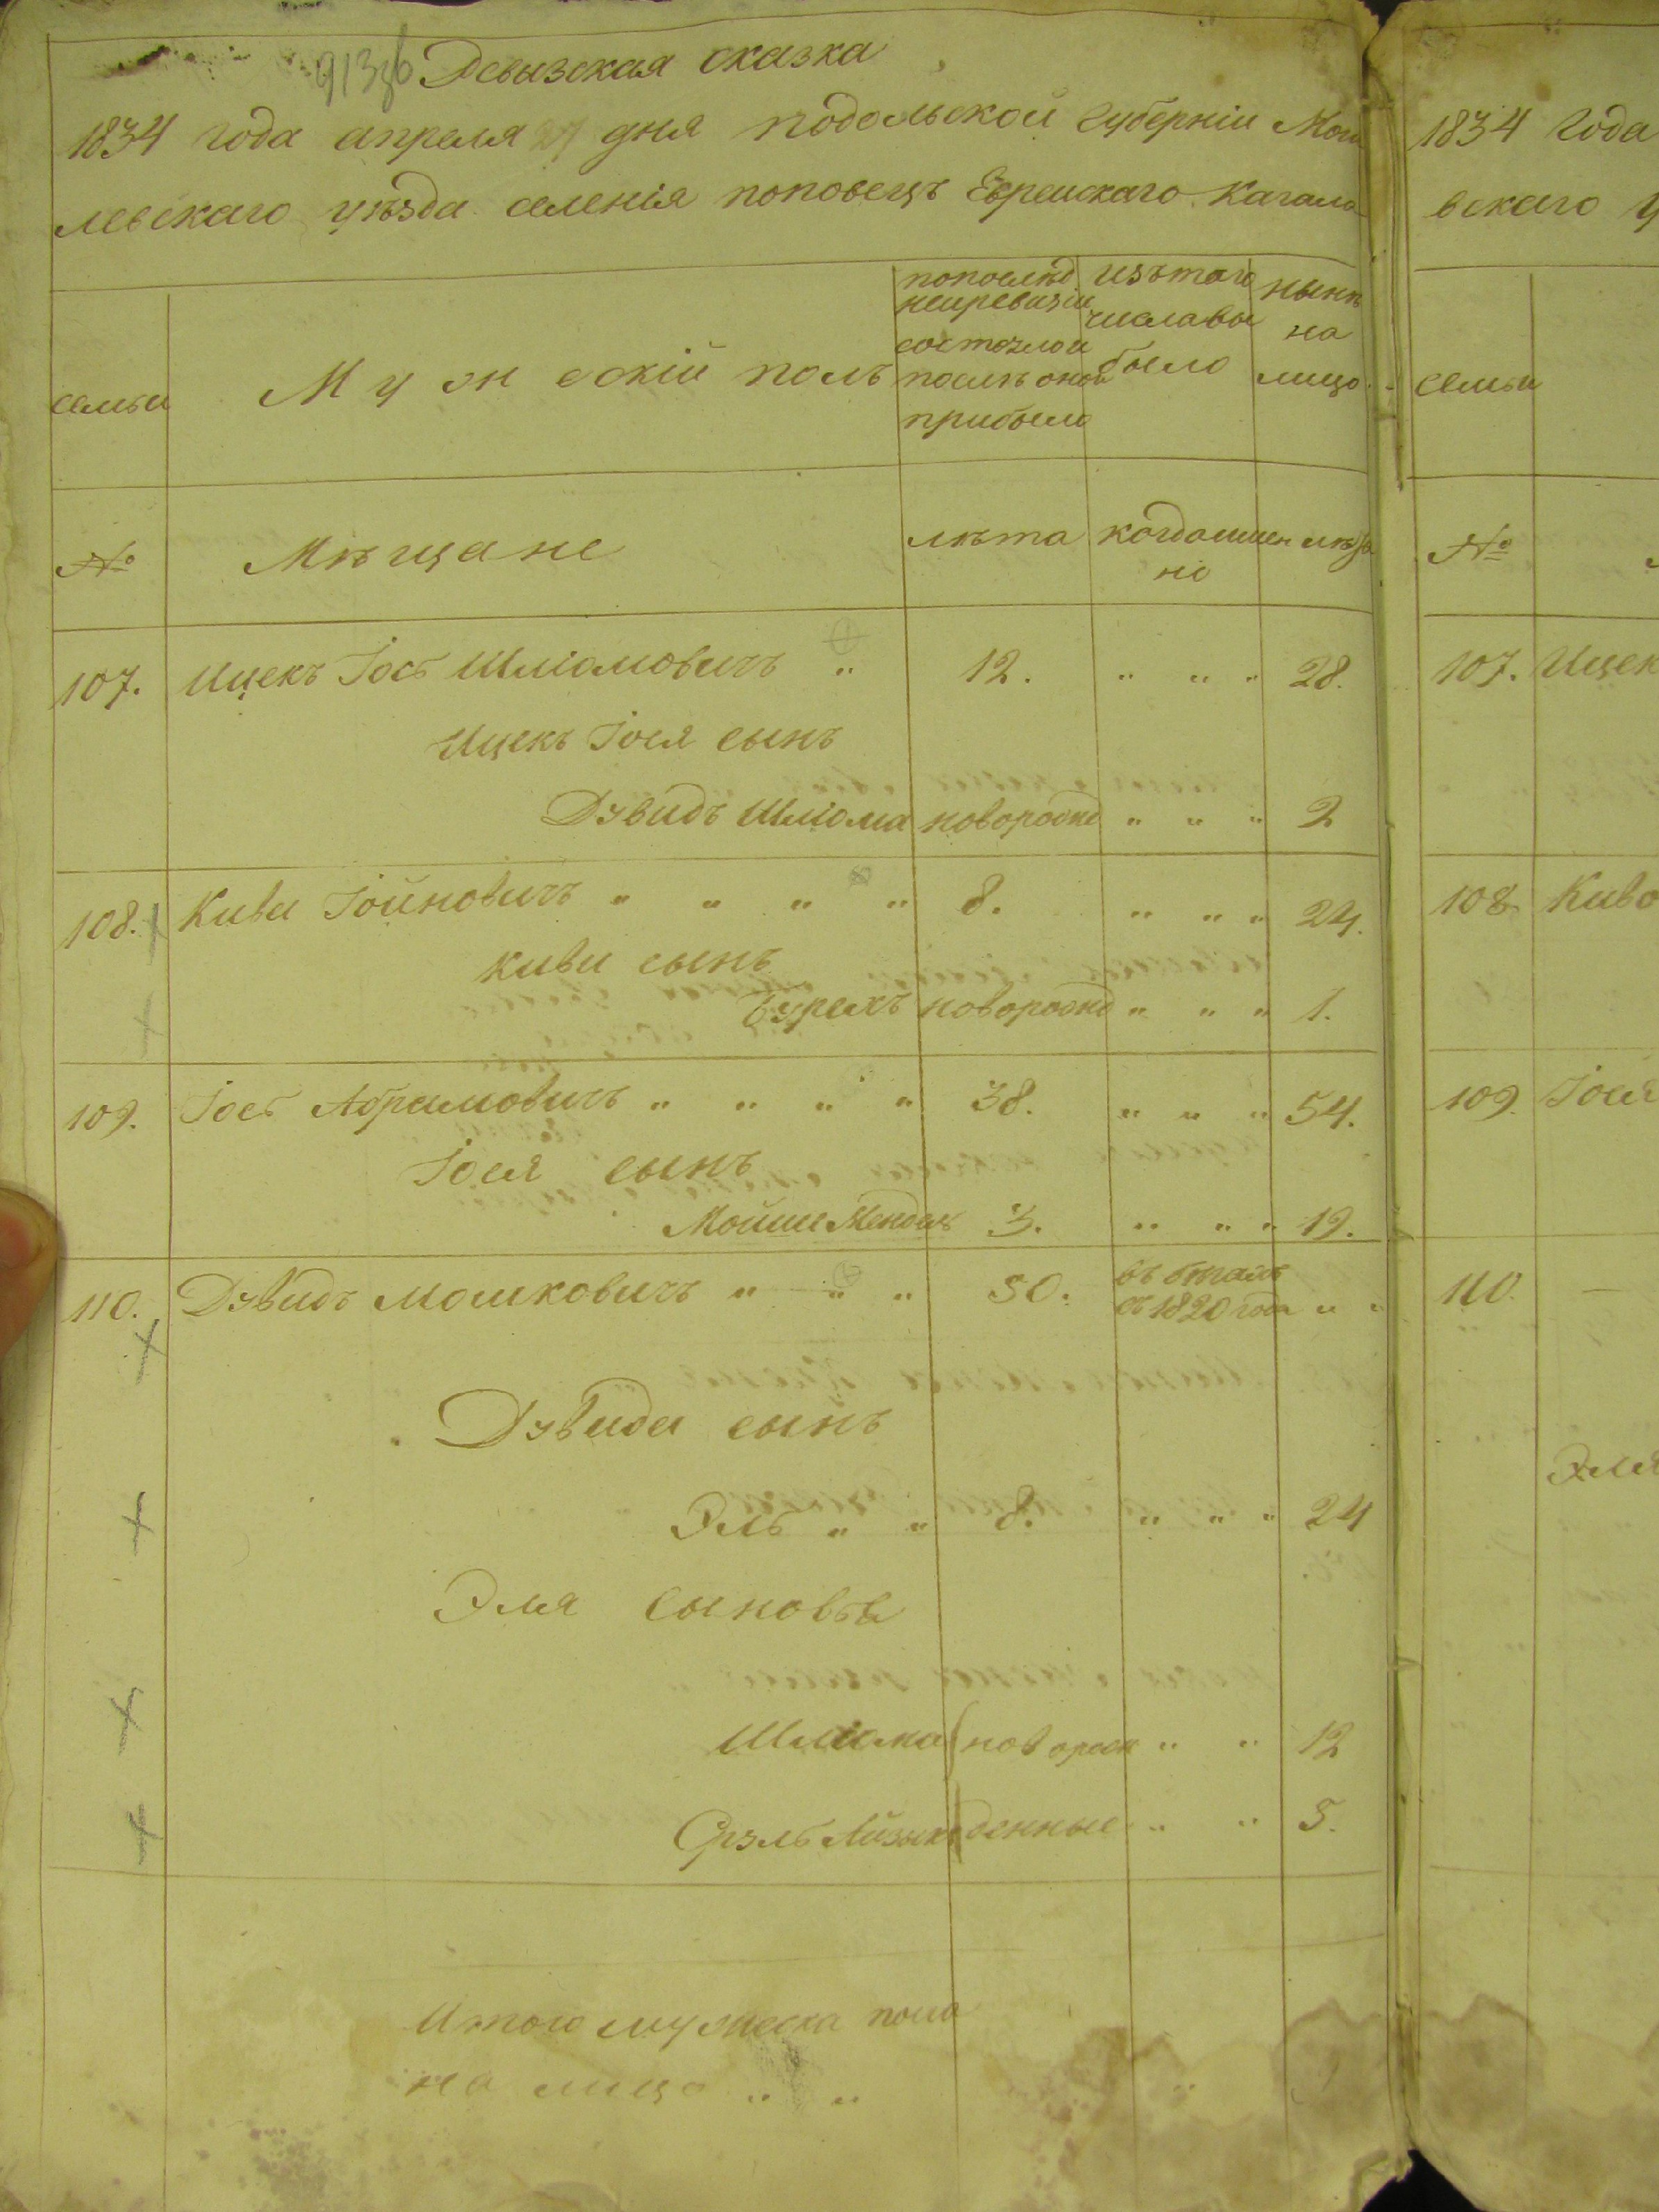 Ревызская сказка
1834 года апреля 27 дня подольской губерніи Моги
левскаго уѣзда селенія поповецъ Еврейскаго Кагала
семьи
Мужескій полъ
попослѣд
неиревизіи
состоялои
послѣ оной
прибыло
изъ того
числавы
было
нынѣ
на
лицо
№
Мѣщане
лѣта
когдаимен
но
лѣта
107. Ицекъ Іось Шліомовичъ " 12. " " " 28.
Ицекъ Іося сынъ
Дувидъ Шліома новорожд " " " 2
108. Киви Іойновичъ " " " " 8. " " " 24.
Киви сынъ
Бурехъ новорожд " " " 1.
109. Іось Абрамовичъ " " " " 38. " " " 54.
Іося сынъ
Мойше Мендель 3. " " " 19.
110. Дувидъ Мошковичъ " " " 50. въ бѣгахъ
съ 1820 года " "
Дувида сынъ
Эль " " 8. " " " 24
Эля сыновья
Шліома новорож " " 12
Срэль Айзыкъ денные " " 5.
Итого мужеска пола
на лицо " "
1834 года
вскаго у
семьи
№
107. Ицек
108 Киво
109. Іося
110.
Эля